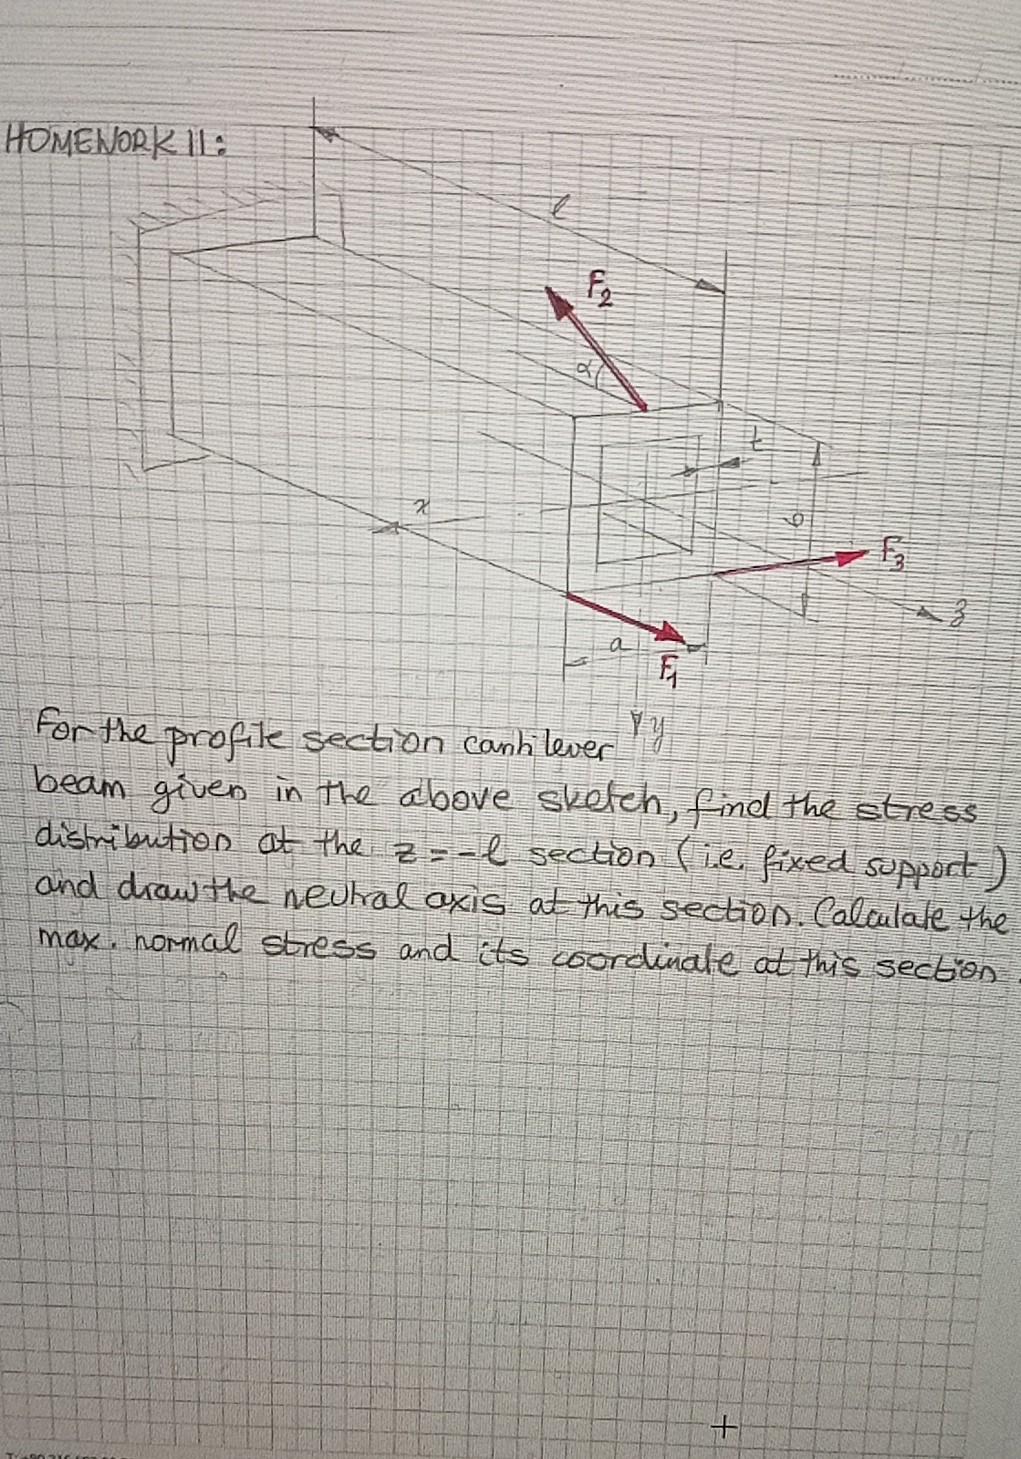 HOMEWORK 11:
l
F2
α
t
x
b
F3
z
a
F1
y
For the profile section cantilever
beam given in the above sketch, find the stress
distribution at the z=-l section (i.e. fixed support)
and draw the neutral axis at this section. Calculate the
max. normal stress and its coordinate at this section.
+